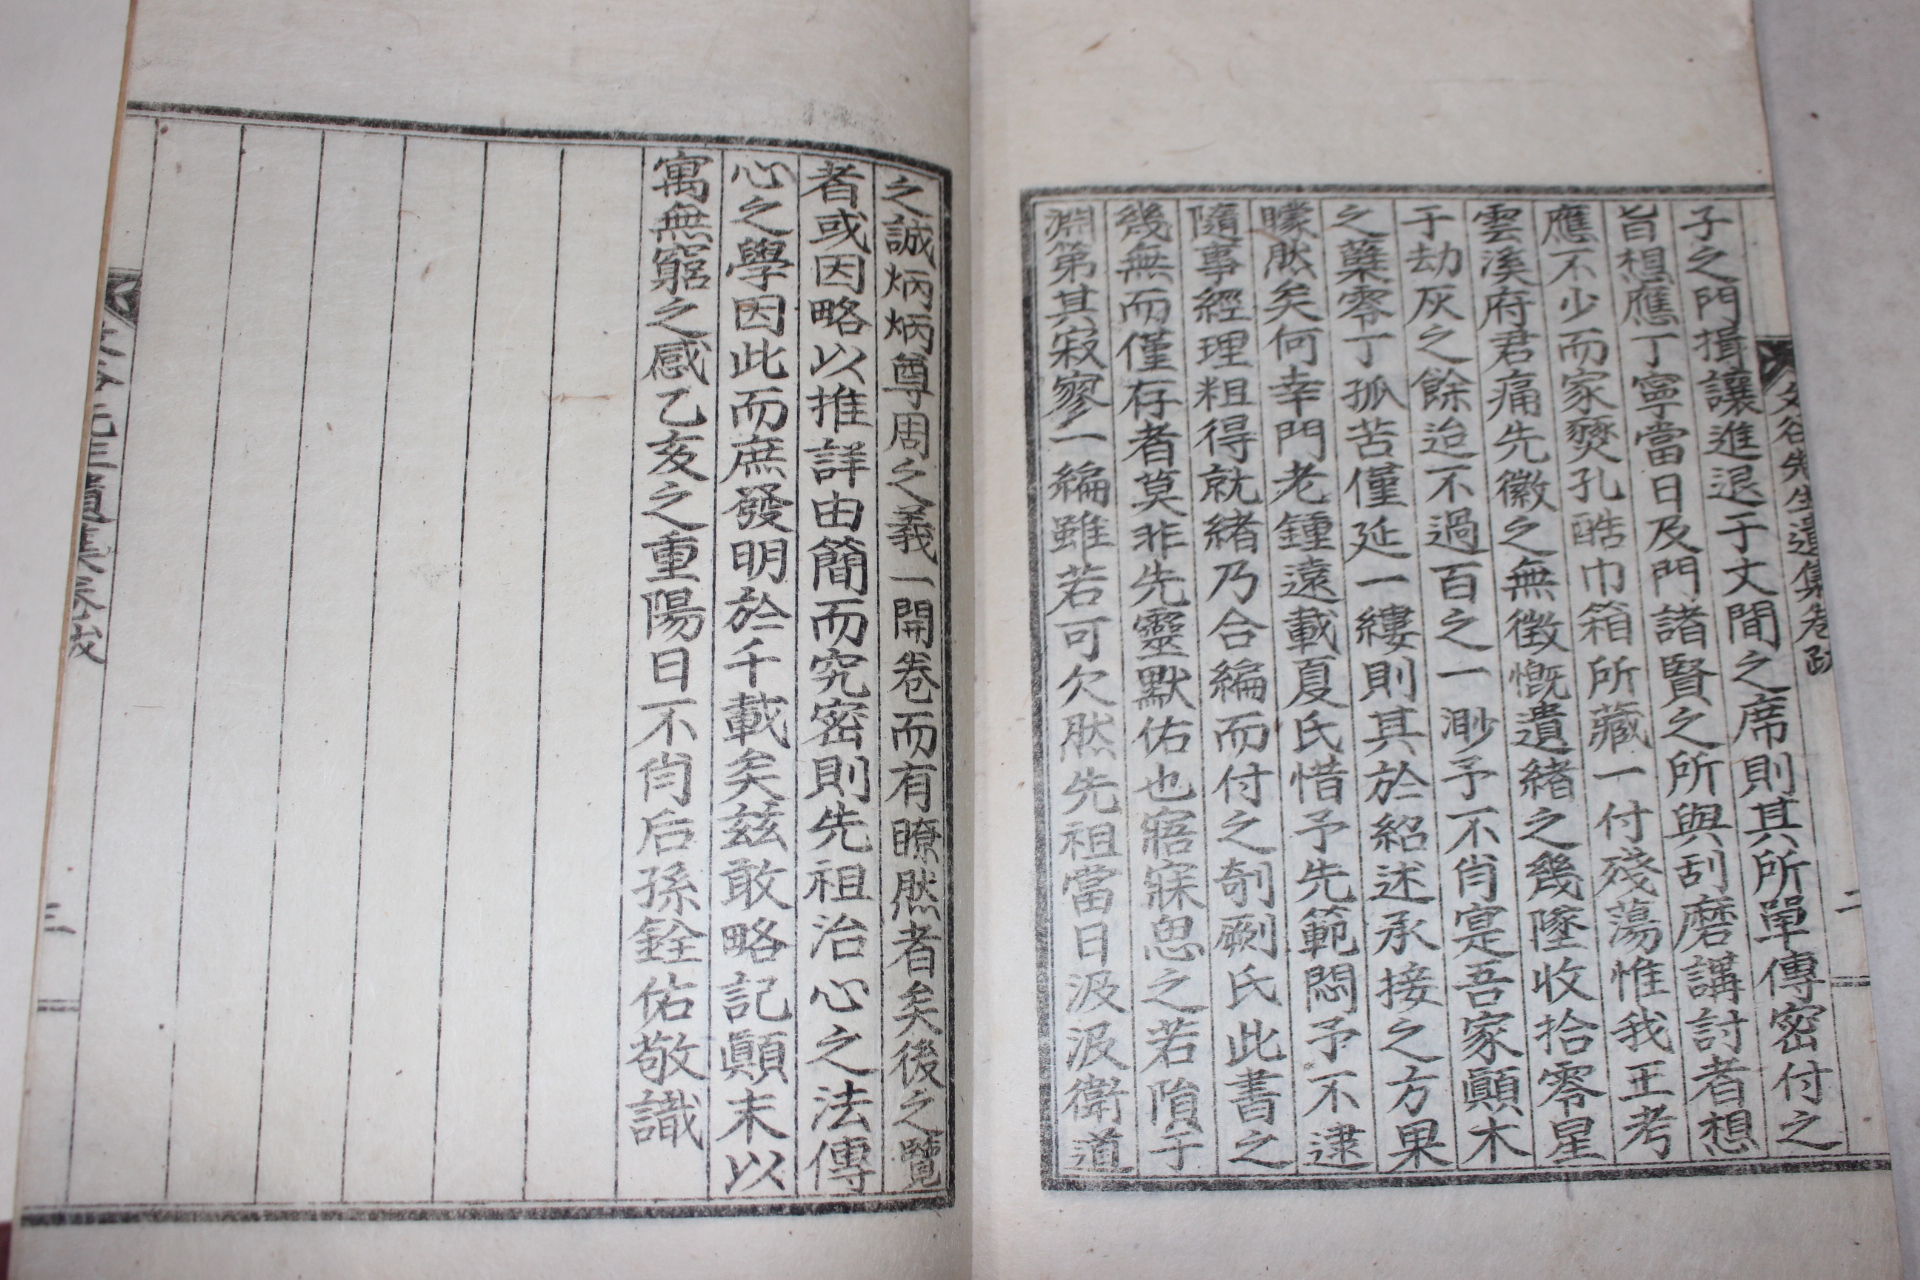 文谷先生遺集卷跋
二
子之門揖讓進退于丈間之席則其所單傳密付之
旨想應丁寧當日及門諸賢之所與刮磨講討者想
應不少而家燹孔酷巾箱所藏一付殘蕩惟我王考
雲溪府君痛先徽之無徵慨遺緖之幾墜收拾零星
于劫灰之餘迨不過百之一渺予不肖寔吾家顚木
之蘖零丁孤苦僅延一縷則其於紹述承接之方果
矇然矣何幸門老鍾遠載夏氏惜予先範悶予不逮
隨事經理粗得就緖乃合編而付之剞劂氏此書之
幾無而僅存者莫非先靈默佑也寤寐思之若隕于
淵第其寂寥一編雖若可欠然先祖當日汲汲衛道
之誠炳炳尊周之義一開卷而有瞭然者矣後之覽
者或因略以推詳由簡而究密則先祖治心之法傳
心之學因此而庶發明於千載矣玆敢略記顚末以
寓無窮之感乙亥之重陽日不肖后孫銓佑敬識
文谷先生遺集卷跋
三